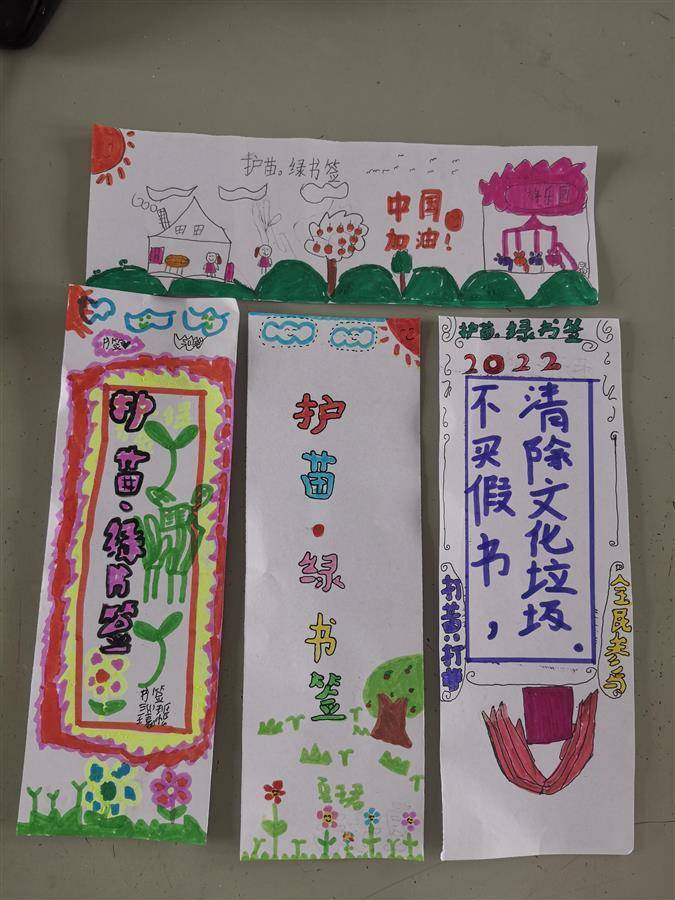 护苗。绿书签
中国
加油!
游乐园
护苗·绿书签
护苗·绿书签
护苗.绿书签
2022
不买假书，
清除文化垃圾.
扫黄!打非
全民参与